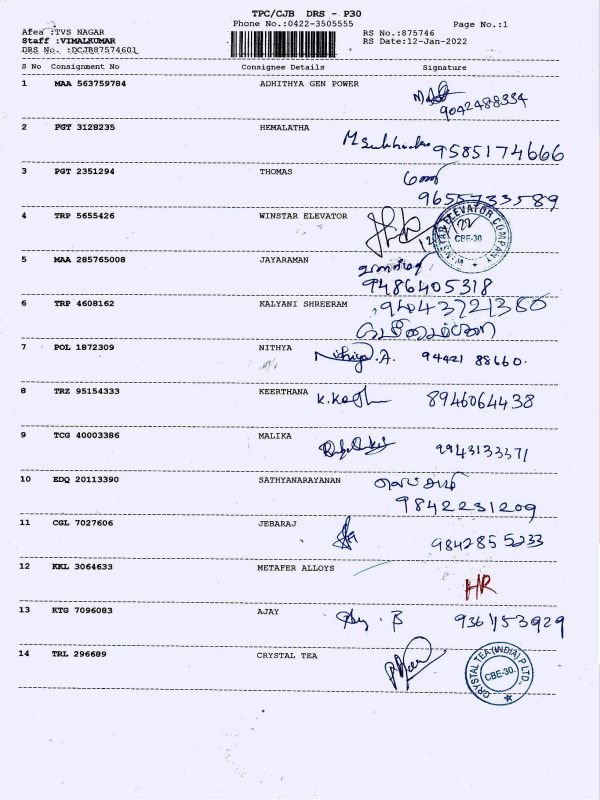 TPC/CJB DRS - P30
Phone No.:0422-3505555 Page No.:1
Afea :TVS NAGAR RS No.:875746
Staff :VIMALKUMAR RS Date:12-Jan-2022
DRS No. :DCJB87574601
S No Consignment No Consignee Details Signature
1 MAA 563759784 ADHITHYA GEN POWER
9042488334
2 PGT 3128235 HEMALATHA
9585174666
3 PGT 2351294 THOMAS
9655733589
4 TRP 5655426 WINSTAR ELEVATOR
WINSTAR ELEVATOR COMPANY CBE-30
5 MAA 285765008 JAYARAMAN
9486405318
6 TRP 4608162 KALYANI SHREERAM
7 POL 1872309 NITHYA
Nithiya.A. 94421 88660.
8 TRZ 95154333 KEERTHANA
8946064438
9 TCG 40003386 MALIKA
9943133371
10 EDQ 20113390 SATHYANARAYANAN
9842231209
11 CGL 7027606 JEBARAJ
9842855233
12 KKL 3064633 METAFER ALLOYS
HR
13 KTG 7096083 AJAY
9361153929
14 TRL 296689 CRYSTAL TEA
CRYSTAL TEA (INDIA) P LTD. CBE-30.